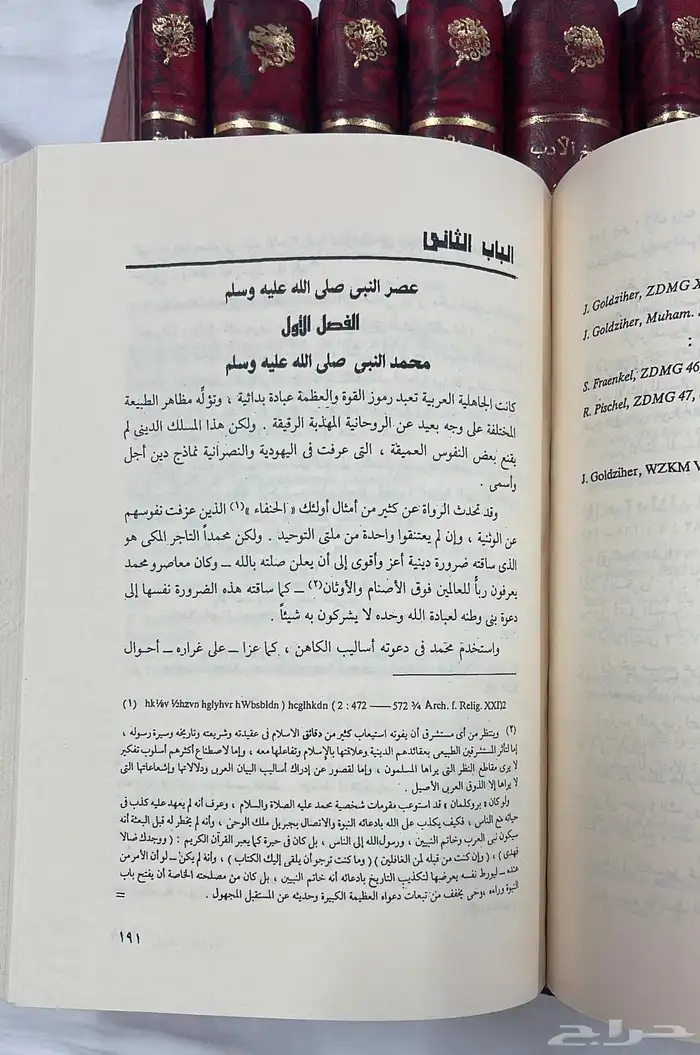 الأدب
الباب الثانى
عصر النبى صلى الله عليه وسلم
الفصل الأول
محمد النبى صلى الله عليه وسلم
كانت الجاهلية العربية تعبد رموز القوة والعظمة عبادة بدائية ، وتؤلّه مظاهر الطبيعة
المختلفة على وجه بعيد عن الروحانية المهذبة الرقيقة . ولكن هذا المسلك الدينى لم
يقنع بعض النفوس العميقة ، التى عرفت فى اليهودية والنصرانية نماذج دين أجل
وأسمى .
وقد تحدث الرواة عن كثير من أمثال أولئك « الحنفاء »(١) الذين عزفت نفوسهم
عن الوثنية ، وإن لم يعتنقوا واحدة من ملتى التوحيد . ولكن محمداً التاجر المكى هو
الذى ساقته ضرورة دينية أعز وأقوى إلى أن يعلن صلته بالله ــ وكان معاصرو محمد
يعرفون رباً للعالمين فوق الأصنام والأوثان(٢) ــ كما ساقته هذه الضرورة نفسها إلى
دعوة بنى وطنه لعبادة الله وحده لا يشركون به شيئاً .
واستخدم محمد فى دعوته أساليب الكاهن ، كما عزا ــ على غراره ــ أحوال
(١) hk¼v ½hzvn hglyhvr hWbsbldn ) hcglhkdn ( 2 : 472 —— 572 ¾ Arch. f. Relig. XXI)2
(٢) وينتظر من أى مستشرق أن يفوته استيعاب كثير من دقائق الاسلام فى عقيدته وشريعته وتاريخه وسيرة رسوله ،
إما لتأثر المستشرقين الطبيعى بعقائدهم الدينية وعلاقتها بالإسلام وتفاعلها معه ، وإما لاصطناع أكثرهم أسلوب تفكير
لا يرى مقاطع النظر التى يراها المسلمون ، وإما لقصور عن إدراك أساليب البيان العربى ودلالاتها وإشعاعاتها التى
لا يراها إلا الذوق العربى الأصيل .
ولو كان « بروكلمان » قد استوعب مقومات شخصية محمد عليه الصلاة والسلام ، وعرف أنه لم يعهد عليه كذب فى
حياته مع الناس ، فكيف يكذب على الله بادعائه النبوة والاتصال بجبريل ملك الوحى ، وأنه لم يخطر له قبل البعثة أنه
سيكون نبى العرب وخاتم النبيين ، ورسول الله إلى الناس ، بل كان فى حيرة كما يعبر القرآن الكريم : ( ووجدك ضالا
فهدى ) ، ( وإن كنت من قبله لمن الغافلين ) ( وما كنت ترجو أن يلقى إليك الكتاب ) ، وأنه لم يكن ــ لو أن الأمر من
عنده ــ ليورط نفسه بعرضها لتكذيب التاريخ بادعائه أنه خاتم النبيين ، بل كان من مصلحته الخاصة أن يفتح باب
النبوة وراءه ، وحى يخفف من تبعات دعواه العظيمة الكبيرة وحديثه عن المستقبل المجهول .
=
١٩١
J. Goldziher, ZDMG
J. Goldziher, Muham.
:
S. Fraenkel, ZDMG 46
R. Pischel, ZDMG 47,
J. Goldziher, WZKM V
حراج